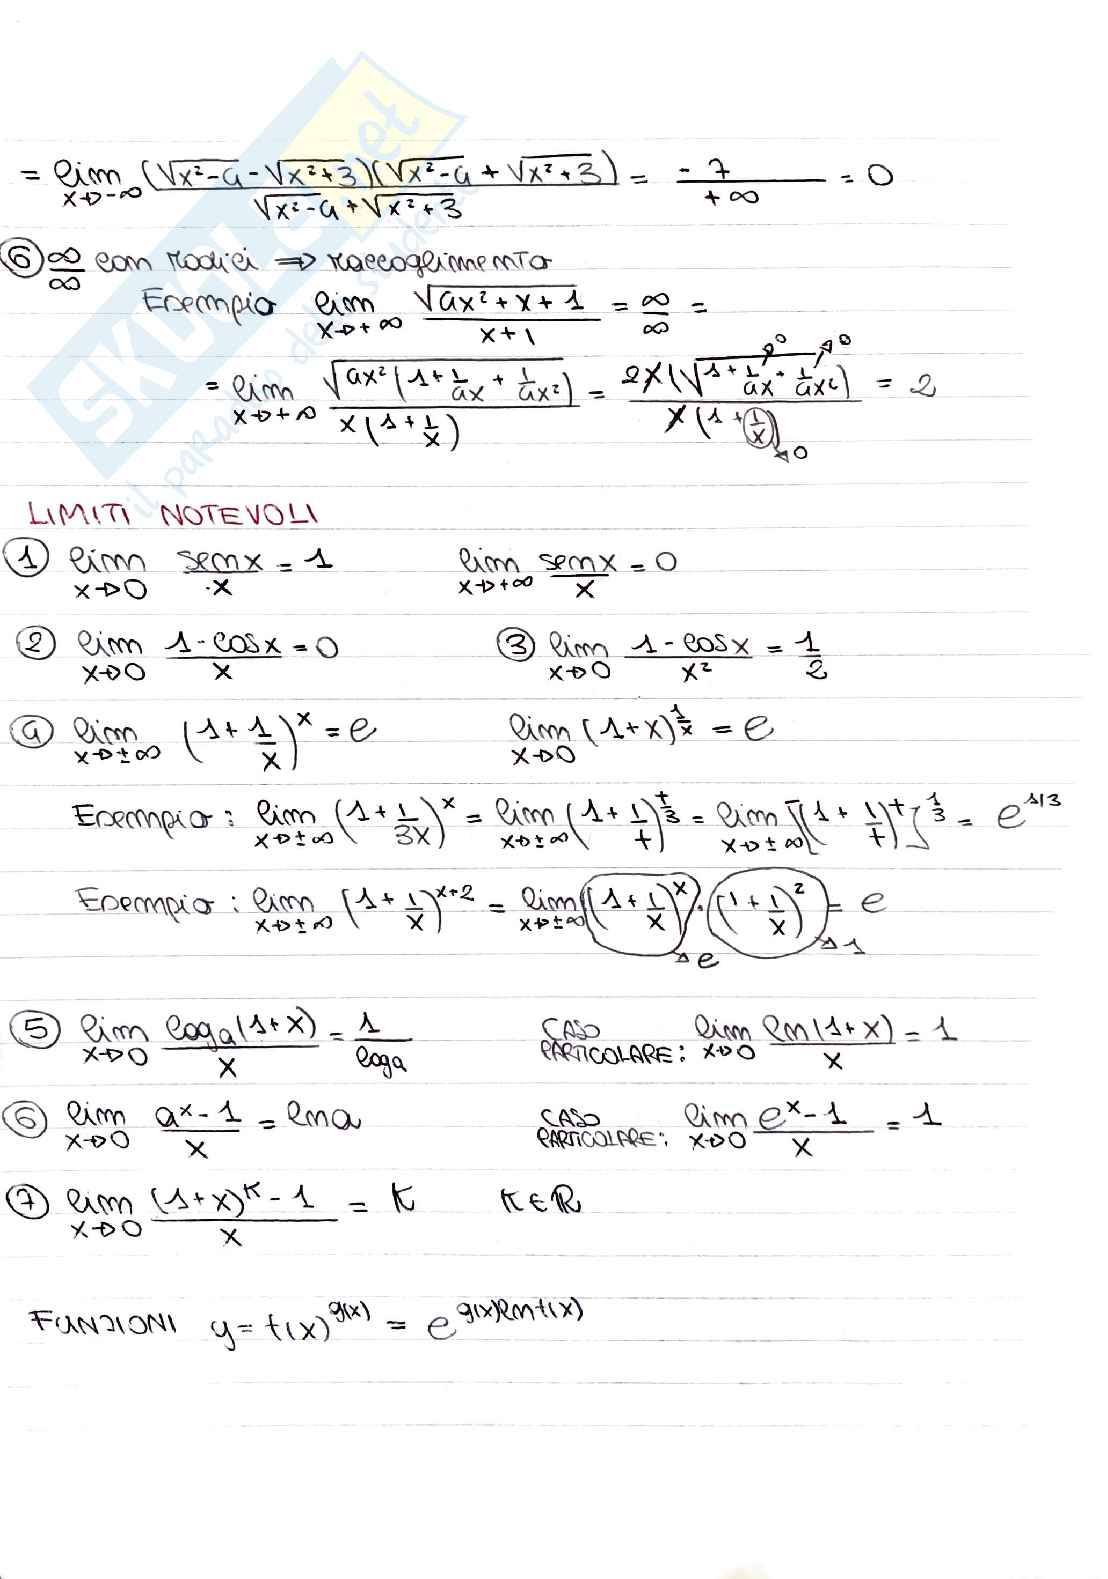 = lim x→-∞ (√x²-4 - √x²+3)(√x²-4 + √x²+3) / √x²-4 + √x²+3 = -7 / +∞ = 0
⑥ ∞/∞ con radici ⇒ raccoglimento
Esempio lim x→+∞ √4x²+x+1 / x+1 = ∞/∞ =
= lim x→+∞ √4x²(1+1/4x+1/4x²) / x(1+1/x) = 2x(√1+1/4x+1/4x²) / x(1+1/x) = 2
→0 →0 →0
LIMITI NOTEVOLI
① lim x→0 senx/x = 1 lim x→+∞ senx/x = 0
② lim x→0 1-cosx/x = 0 ③ lim x→0 1-cosx/x² = 1/2
④ lim x→±∞ (1+1/x)^x = e lim x→0 (1+x)^1/x = e
Esempio: lim x→±∞ (1+1/3x)^x = lim x→±∞ (1+1/t)^t/3 = lim x→±∞ [(1+1/t)^t]^1/3 = e^1/3
Esempio: lim x→±∞ (1+1/x)^x+2 = lim x→±∞ (1+1/x)^x · (1+1/x)^2 = e
→e →1
⑤ lim x→0 loga(1+x)/x = 1/loga CASO PARTICOLARE: lim x→0 ln(1+x)/x = 1
⑥ lim x→0 a^x-1/x = lna CASO PARTICOLARE: lim x→0 e^x-1/x = 1
⑦ lim x→0 (1+x)^K-1/x = K K∈ℝ
FUNZIONI y = f(x)^g(x) = e^g(x)lnf(x)
SKUOLA.net
il paradiso dello studente